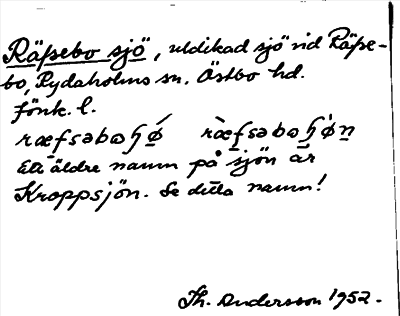 Räpsebo sjö, utdikad sjö vid Räpse-
bo, Rydaholms sn. Östbo hd.
Jönk. l.
ræfsəbωɧǿ ræ̀fsəbωɧø̀n
Ett äldre namn på sjön är
Kroppsjön. Se detta namn!
Th. Andersson 1952.